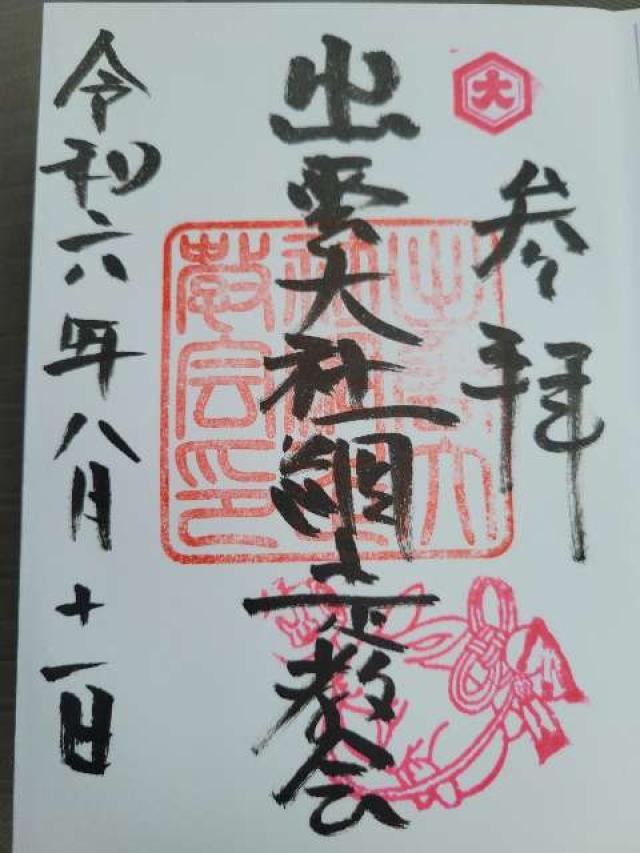 大
参拝
出雲大社網走教会
出雲大
社網走
教会印
令和六年八月十一日